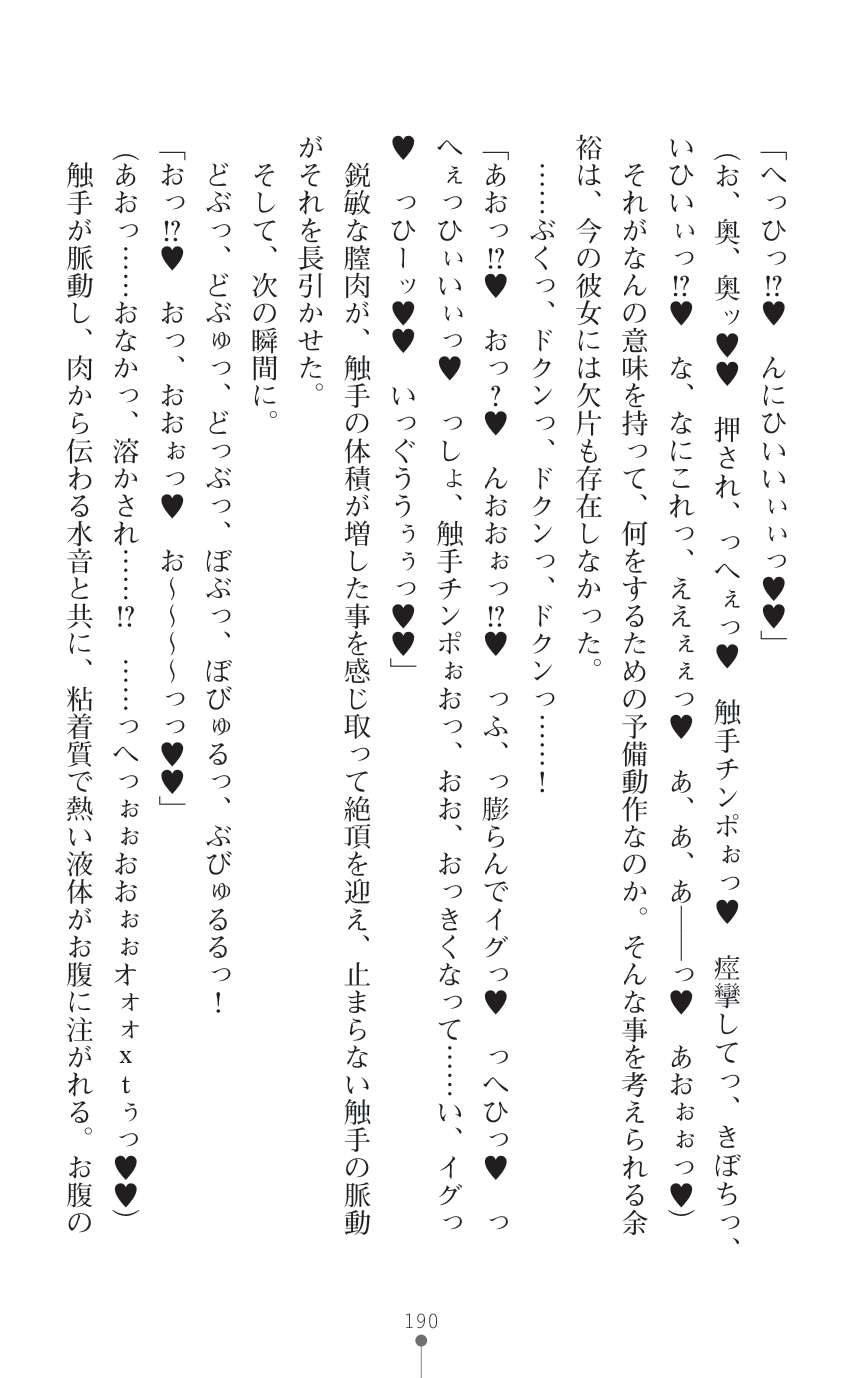 「へっひっ!?♥　んにひいいぃぃっ♥♥」
(お、奥、奥ッ♥♥　押され、っへぇっ♥　触手チンポぉっ♥　痙攣してっ、きぼちっ、
いひいぃっ!?♥　な、なにこれっ、ええぇぇっ♥　あ、あ、あ――っ♥　あおぉぉっ♥)
　それがなんの意味を持って、何をするための予備動作なのか。そんな事を考えられる余
裕は、今の彼女には欠片も存在しなかった。
　……ぶくっ、ドクンっ、ドクンっ、ドクンっ……！
「あおっ!?♥　おっ？♥　んおおぉっ!?♥　っふ、っ膨らんでイグっ♥　っへひっ♥　っ
へぇっひぃいぃっ♥　っしょ、触手チンポぉおっ、おお、おっきくなって……い、イグっ
♥　っひーッ♥♥　いっぐううぅぅっ♥♥」
　鋭敏な膣肉が、触手の体積が増した事を感じ取って絶頂を迎え、止まらない触手の脈動
がそれを長引かせた。
　そして、次の瞬間に。
　どぶっ、どぶゅっ、どっぶっ、ぼぶっ、ぼびゅるっ、ぶびゅるるっ！
「おっ!?♥　おっ、おおぉっ♥　お～～～～っっ♥♥」
(あおっ……おなかっ、溶かされ……!?　……っへっぉぉおおぉぉオォォｘｔぅっ♥♥)
　触手が脈動し、肉から伝わる水音と共に、粘着質で熱い液体がお腹に注がれる。お腹の
190